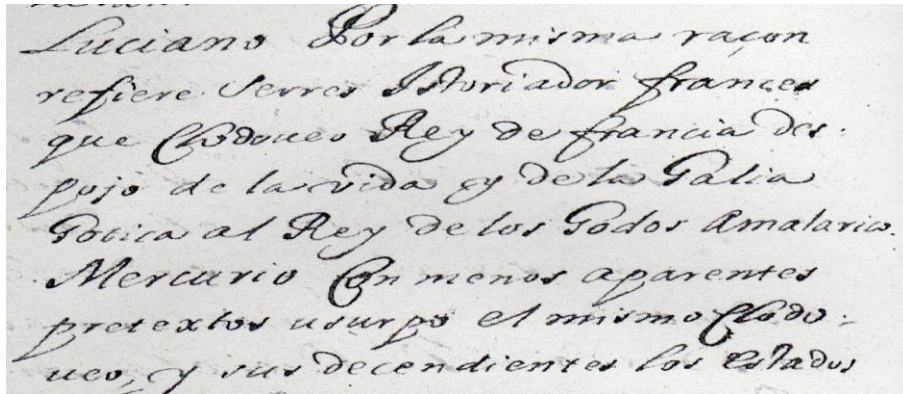 Luciano Por la misma raçon
refiere Serres Istoriador frances
que Clodoueo Rey de francia des-
pojo de la vida y de la Galia
Gotica al Rey de los Godos Amalarico.
Mercurio Con menos aparentes
pretextos usurpo el mismo Clodo-
ueo, y sus decendientes los estados